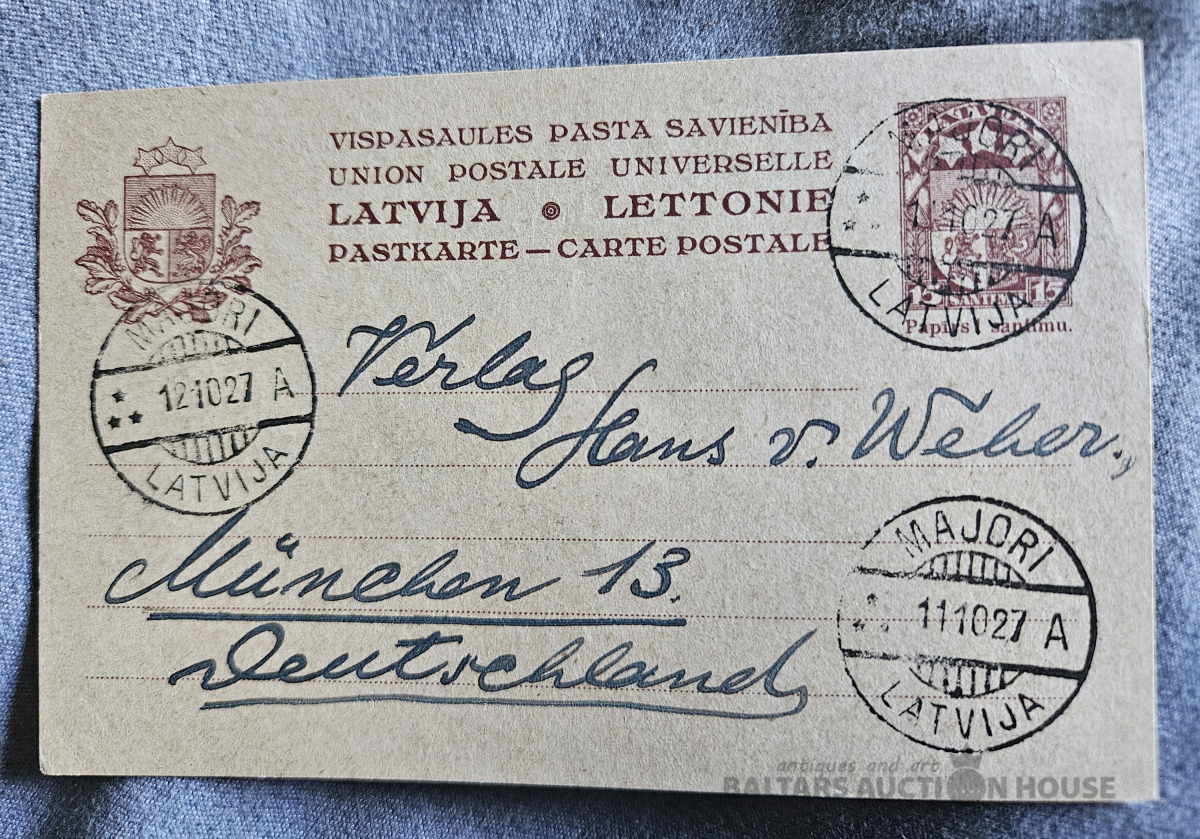 VISPASAULES PASTA SAVIENĪBA
UNION POSTALE UNIVERSELLE
LATVIJA LETTONIE
PASTKARTE — CARTE POSTALE
LATVIJA
15 SANTIMU 15
Papīrs 1 santīmu.
MAJORI
1027 A
LATVIJA
MAJORI
121027 A
LATVIJA
Verlag
Hans v. Weber.,
München 13.
Deutschland
MAJORI
111027 A
LATVIJA
antiques and art
BALTARS AUCTION HOUSE